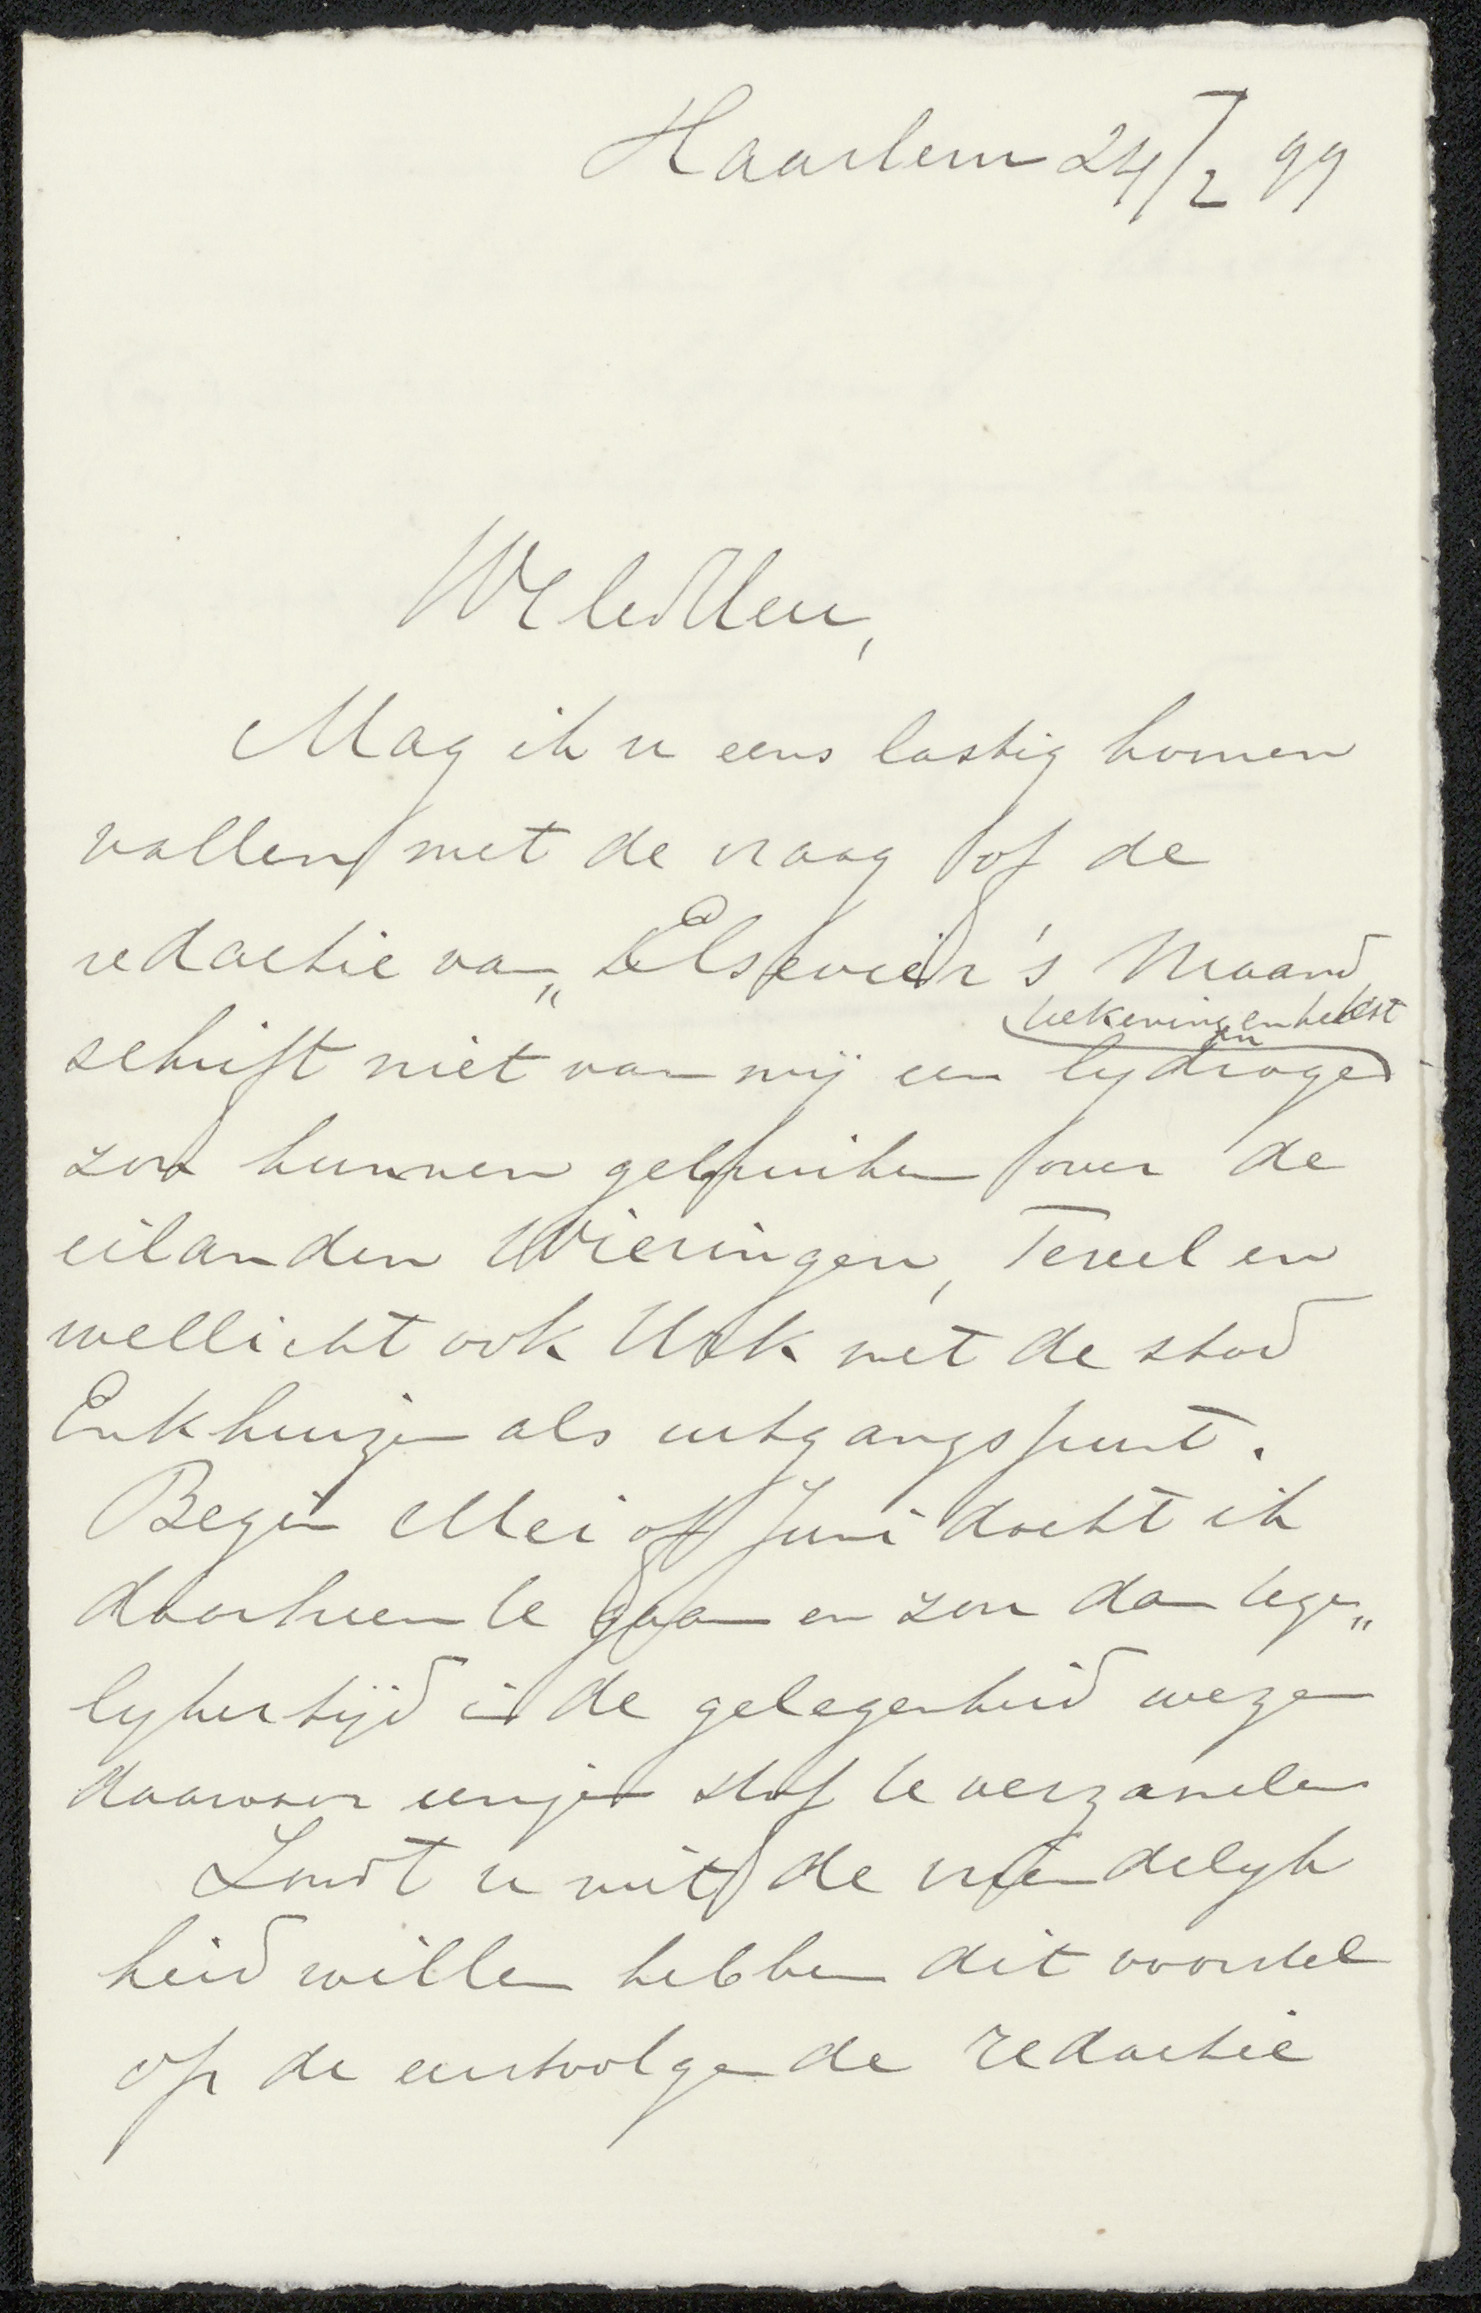 Haarlem 24/2 99
WelEdHeer,
Mag ik u eens lastig komen
vallen met de vraag of de
redactie van „Elsevier's Maand
schrift niet van mij een bydrage
teekening en tekst
zou kunnen gebruiken over de
eilanden Wieringen, Texel en
wellicht ook Urk met de stad
Enkhuizen als uitgangspunt.
Begin Mei of Juni dacht ik
daarheen te gaan en zou dan tege„
lykertijd in de gelegenheid wezen
daarvoor eenige stof te verzamelen
Zoudt u niet de vriendelyk
heid willen hebben dit voorstel
op de eerstvolgende redactie